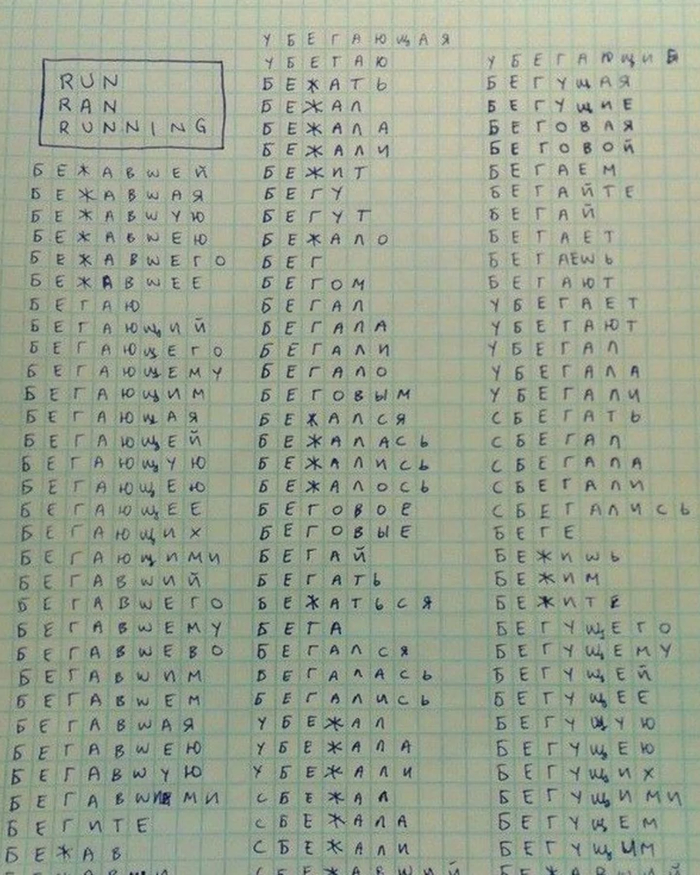 RUN
RAN
RUNNING
БЕЖАВШЕЙ
БЕЖАВШАЯ
БЕЖАВШУЮ
БЕЖАВШЕЮ
БЕЖАВШЕГО
БЕЖАВШЕЕ
БЕГАЮ
БЕГАЮЩИЙ
БЕГАЮЩЕГО
БЕГАЮЩЕМУ
БЕГАЮЩИМ
БЕГАЮЩАЯ
БЕГАЮЩЕЙ
БЕГАЮЩУЮ
БЕГАЮЩЕЮ
БЕГАЮЩЕЕ
БЕГАЮЩИХ
БЕГАЮЩИМИ
БЕГАВШИЙ
БЕГАВШЕГО
БЕГАВШЕМУ
БЕГАВШЕВО
БЕГАВШИМ
БЕГАВШЕМ
БЕГАВШАЯ
БЕГАВШЕЮ
БЕГАВШУЮ
БЕГАВШИМИ
БЕГИТЕ
БЕЖАВ
УБЕГАЮЩАЯ
УБЕГАЮ
БЕЖАТЬ
БЕЖАЛ
БЕЖАЛА
БЕЖАЛИ
БЕЖИТ
БЕГУ
БЕГУТ
БЕЖАЛО
БЕГ
БЕГОМ
БЕГАЛ
БЕГАЛА
БЕГАЛИ
БЕГАЛО
БЕГОВЫМ
БЕЖАЛСЯ
БЕЖАЛАСЬ
БЕЖАЛИСЬ
БЕЖАЛОСЬ
БЕГОВОЕ
БЕГОВЫЕ
БЕГАЙ
БЕГАТЬ
БЕЖАТЬСЯ
БЕГА
БЕГАЛСЯ
БЕГАЛАСЬ
БЕГАЛИСЬ
УБЕЖАЛ
УБЕЖАЛА
УБЕЖАЛИ
СБЕЖАЛ
СБЕЖАЛА
СБЕЖАЛИ
СБЕЖАВШИЙ
УБЕГАЮЩИЙ
БЕГУЩАЯ
БЕГУЩИЕ
БЕГОВАЯ
БЕГОВОЙ
БЕГАЕМ
БЕГАЙТЕ
БЕГАЙ
БЕГАЕТ
БЕГАЕШЬ
БЕГАЮТ
УБЕГАЕТ
УБЕГАЮТ
УБЕГАЛ
УБЕГАЛА
УБЕГАЛИ
СБЕГАТЬ
СБЕГАЛ
СБЕГАЛА
СБЕГАЛИ
СБЕГАЛИСЬ
БЕГЕ
БЕЖИШЬ
БЕЖИМ
БЕЖИТЕ
БЕГУЩЕГО
БЕГУЩЕМУ
БЕГУЩЕЙ
БЕГУЩЕЕ
БЕГУЩУЮ
БЕГУЩЕЮ
БЕГУЩИХ
БЕГУЩИМИ
БЕГУЩЕМ
БЕГУЩИМ
БЕЖАВШИЙ